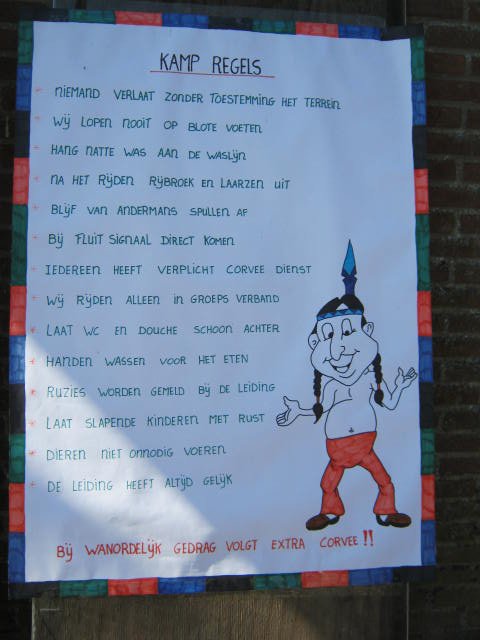 KAMP REGELS
* NIEMAND VERLAAT ZONDER TOESTEMMING HET TERREIN
* WIJ LOPEN NOOIT OP BLOTE VOETEN
* HANG NATTE WAS AAN DE WASLIJN
* NA HET RIJDEN RIJBROEK EN LAARZEN UIT
* BLIJF VAN ANDERMANS SPULLEN AF
* BIJ FLUIT SIGNAAL DIRECT KOMEN
* IEDEREEN HEEFT VERPLICHT CORVEE DIENST
* WIJ RIJDEN ALLEEN IN GROEPS VERBAND
* LAAT WC EN DOUCHE SCHOON ACHTER
* HANDEN WASSEN VOOR HET ETEN
* RUZIES WORDEN GEMELD BIJ DE LEIDING
* LAAT SLAPENDE KINDEREN MET RUST
* DIEREN NIET ONNODIG VOEREN
* DE LEIDING HEEFT ALTIJD GELIJK
BIJ WANORDELIJK GEDRAG VOLGT EXTRA CORVEE!!